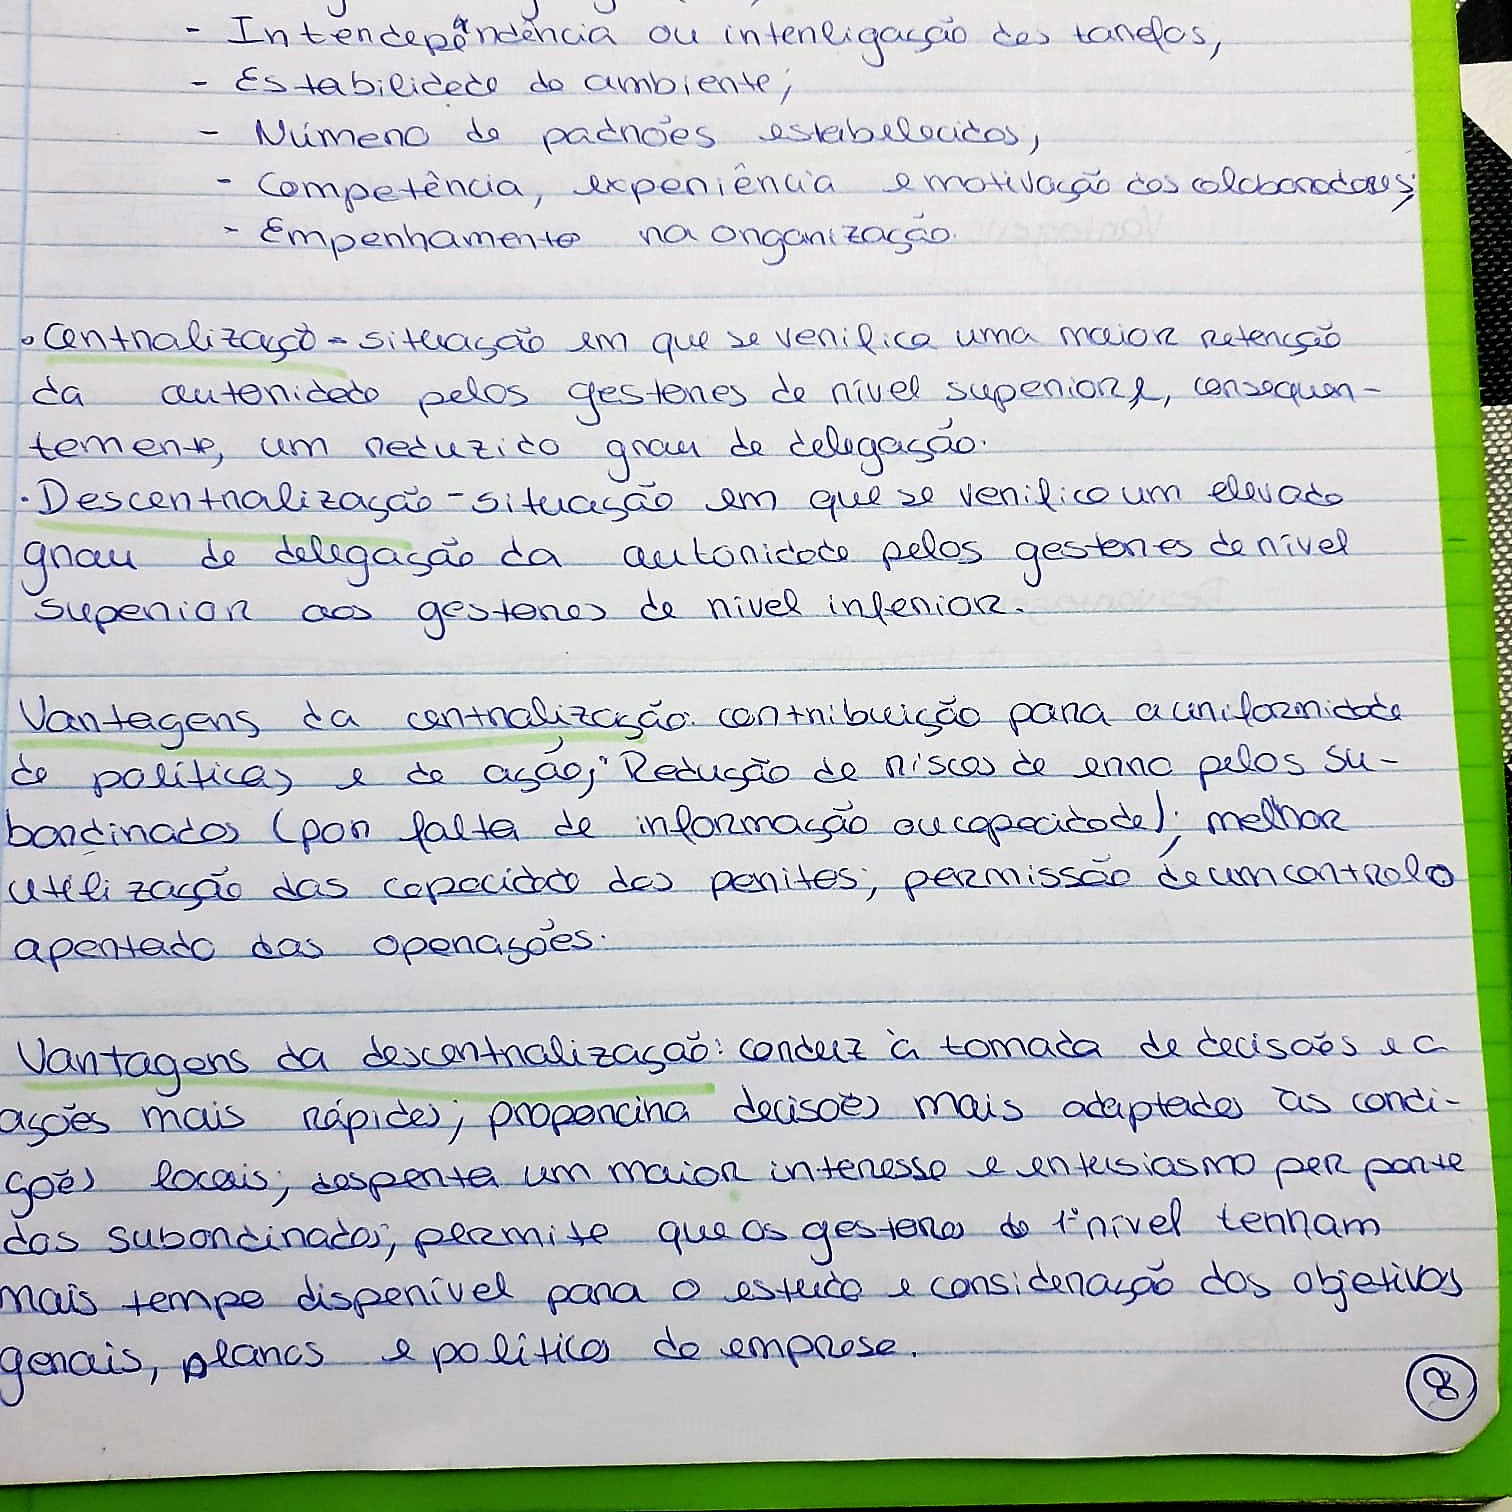 - Interdependência ou interligação das tarefas,
- Estabilidade do ambiente;
- Número de padrões estabelecidos;
- Competência, experiência e motivação dos colaboradores;
- Empenhamento na organização.
• Centralização - situação em que se verifica uma maior retenção
da autoridade pelos gestores de nível superior e, consequen-
temente, um reduzido grau de delegação.
• Descentralização - situação em que se verifica um elevado
grau de delegação da autoridade pelos gestores de nível
superior aos gestores de nível inferior.
Vantagens da centralização: contribuição para a uniformidade
de políticas e de ação; Redução de riscos de erro pelos su-
bordinados (por falta de informação ou capacidade); melhor
utilização das capacidade dos peritos; permissão de um controlo
apertado das operações.
Vantagens da descentralização: conduz à tomada de decisões e a
ações mais rápidas; proporcina decisões mais adaptadas às condi-
ções locais; desperta um maior interesse e entusiasmo por parte
dos subordinados; permite que os gestores de 1º nível tenham
mais tempo disponível para o estudo e consideração dos objetivos
gerais, planos e política da empresa.
8